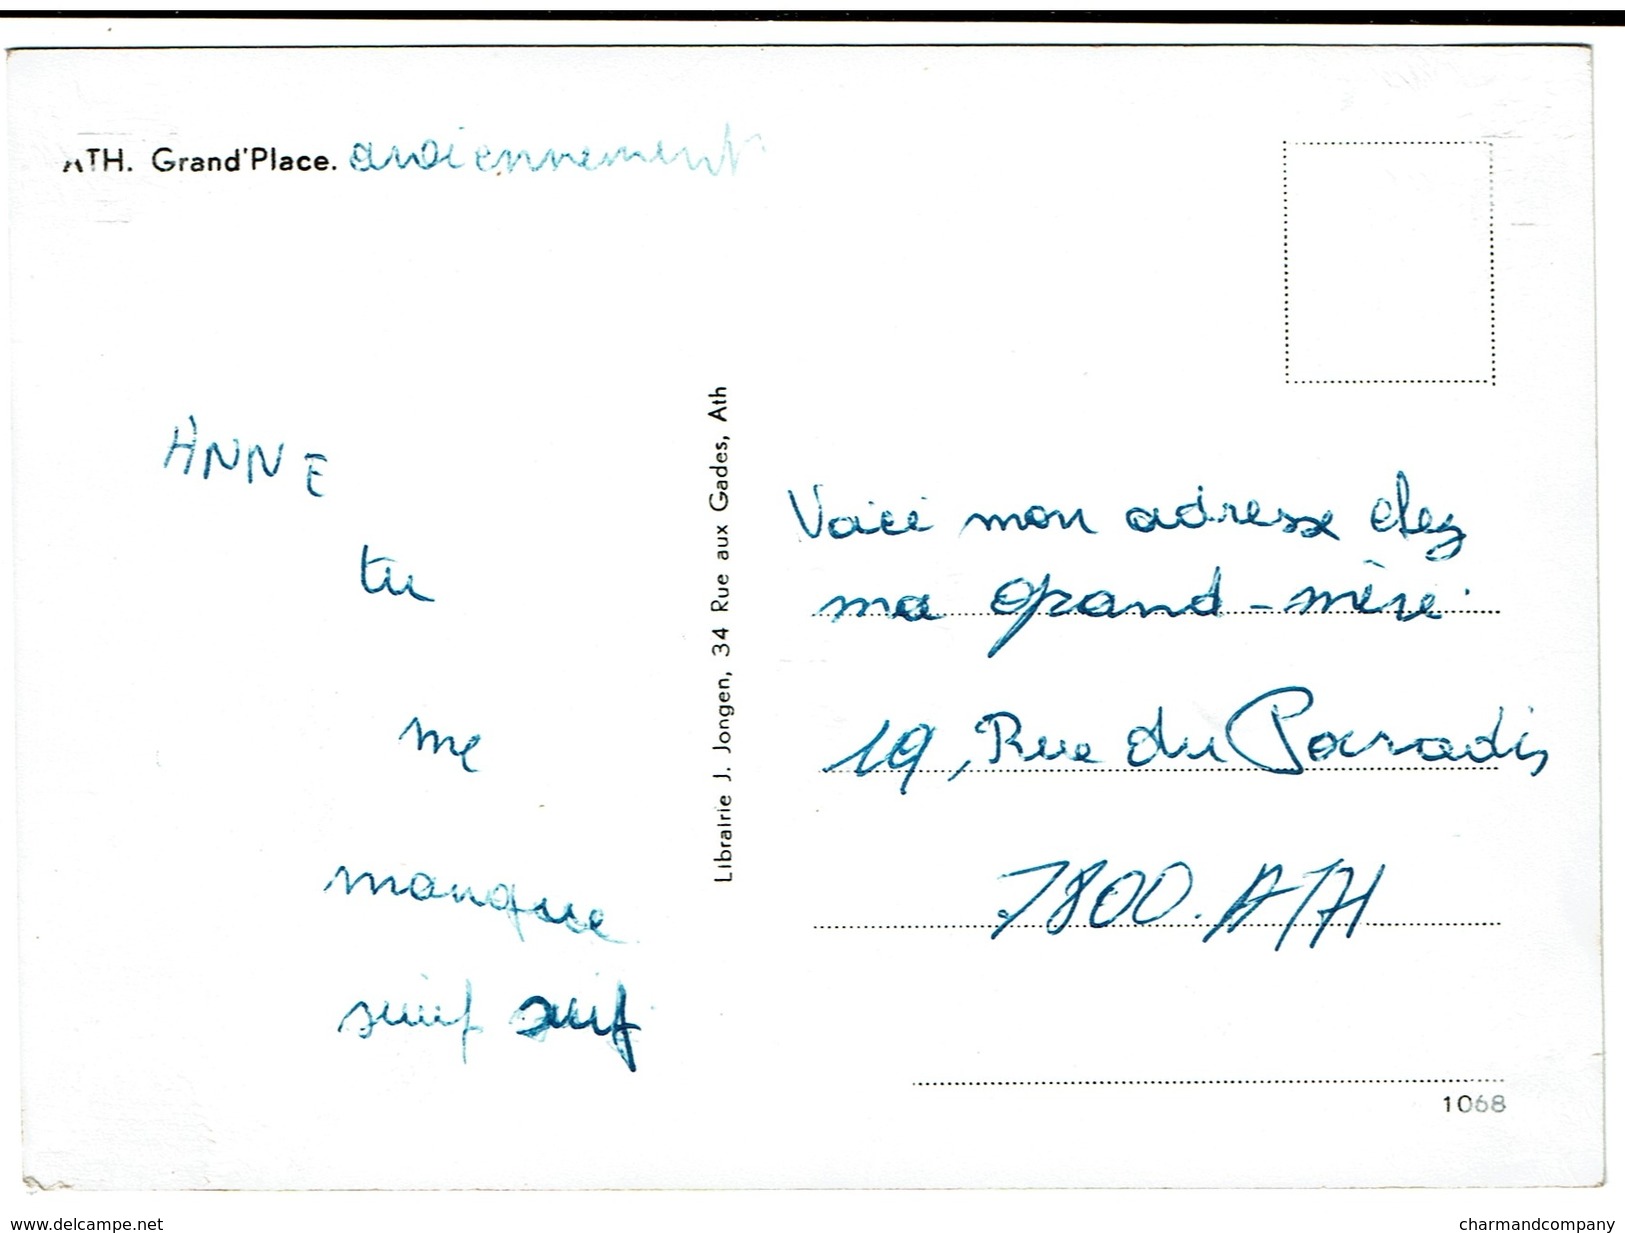 ATH. Grand'Place. anciennement
ANNE
tu
me
manque
snif snif
Librairie J. Jongen, 34 Rue aux Gades, Ath
Voici mon adresse chez
ma grand-mère.
19, Rue du Paradis
7800. ATH
1068
www.delcampe.net
charmandcompany